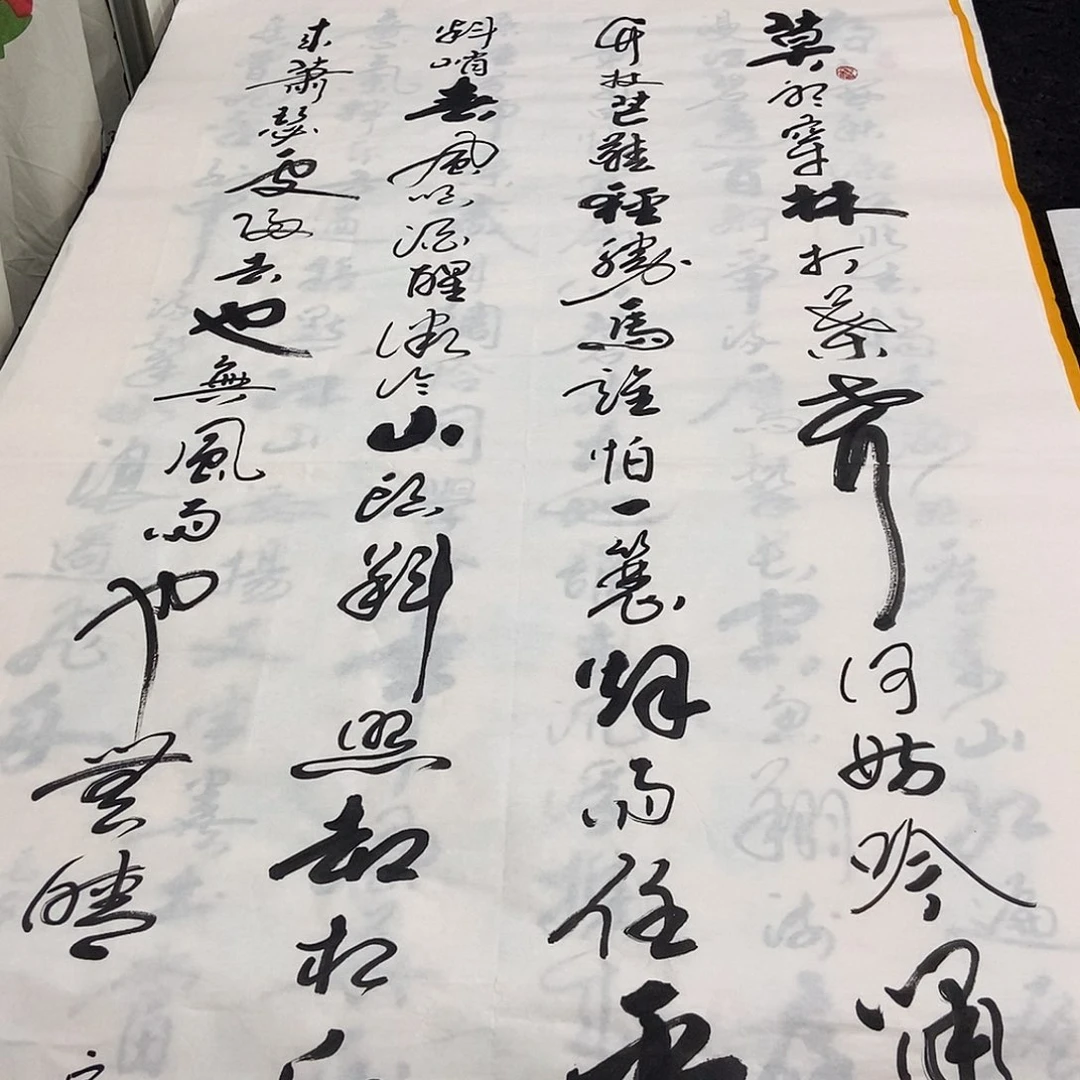 莫听穿林打葉声何妨吟嘯
竹杖芒鞋輕勝馬誰怕一蓑烟雨任平
料峭春風吹酒醒微冷山頭斜照却相
来蕭瑟處歸去也無風雨也無晴